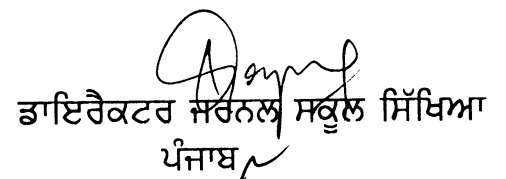 ਡਾਇਰੈਕਟਰ ਜਰਨਲ ਸਕੂਲ ਸਿੱਖਿਆ
ਪੰਜਾਬ